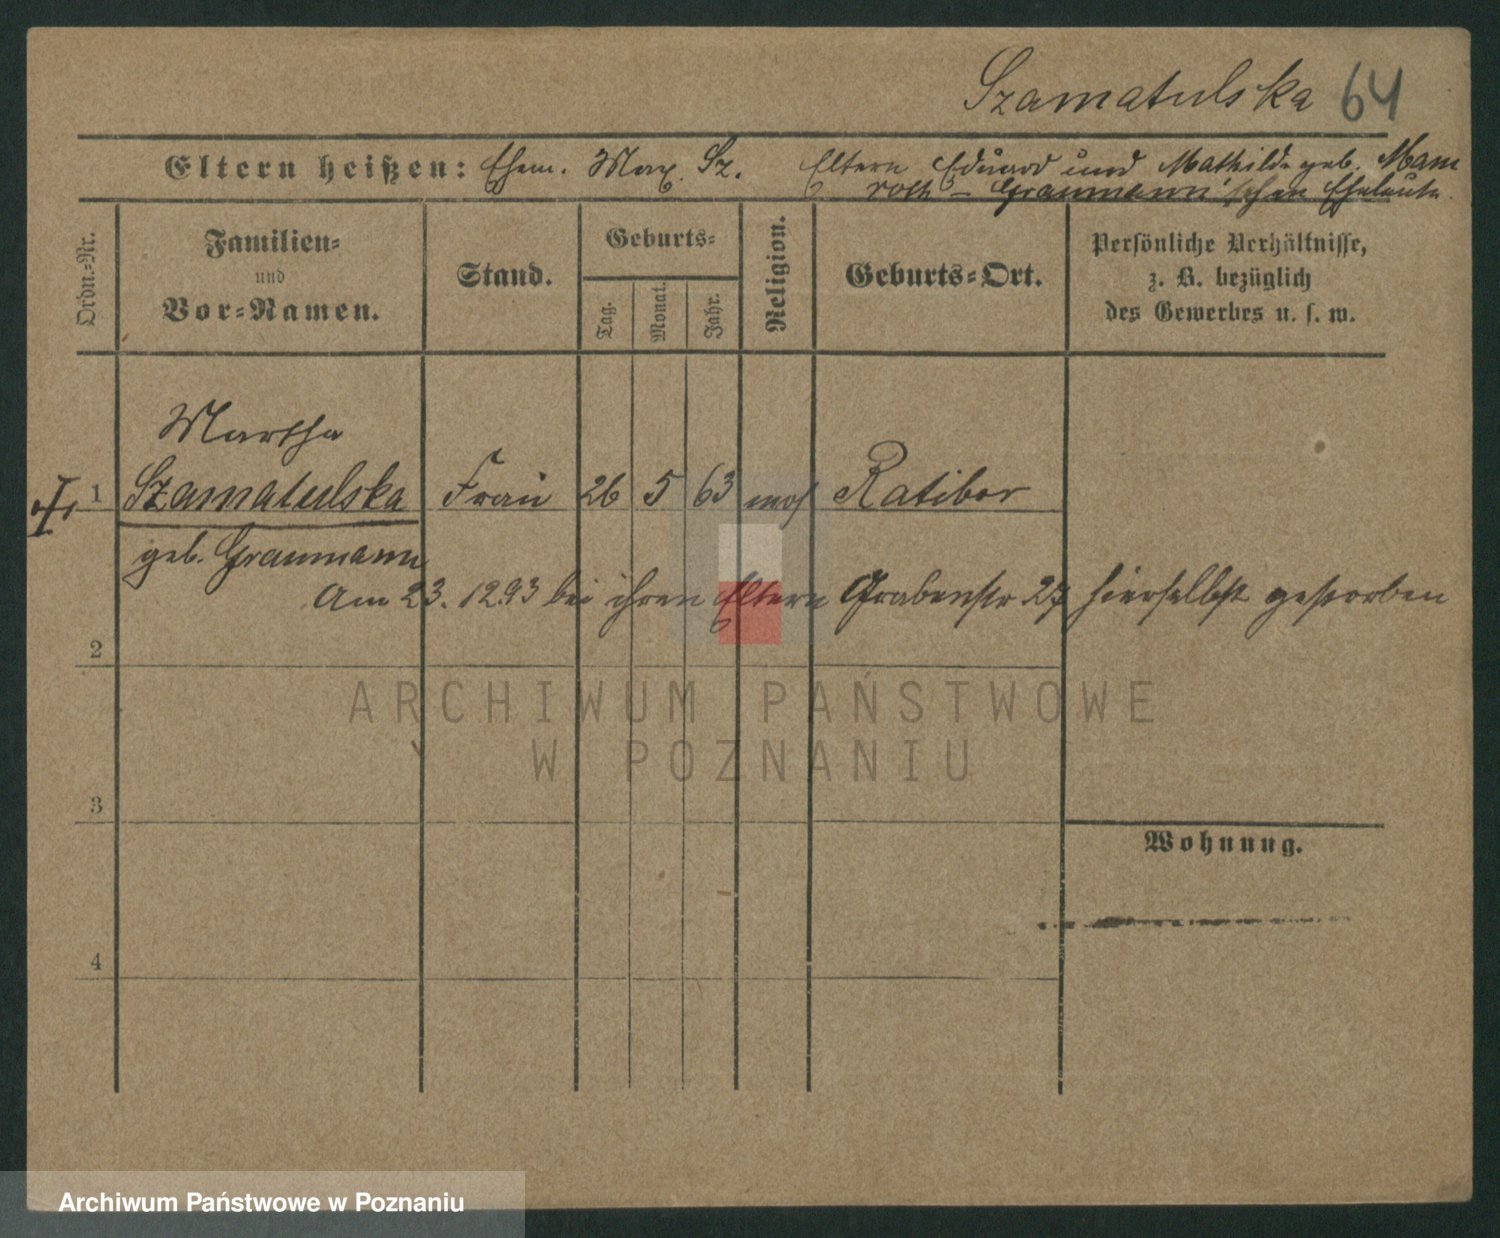 Szamatulska 64
Eltern heißen: Ehem. Max Sz. Eltern Eduard und Mathilde geb. Mam
roth - Graumann'schen Eheleute.
Ordn.-Nr.
Familien-
und
Vor-Namen.
Stand.
Geburts-
Tag.
Monat.
Jahr.
Religion.
Geburts-Ort.
Persönliche Verhältnisse,
z. B. bezüglich
des Gewerbes u. s. w.
Martha
1 Szamatulska Frau 26 5 63 mos Ratibor
geb. Graumann
Am 23. 12.93 bei ihren Eltern Grabenstr 27 hierselbst gestorben
2
3
Wohnung.
4
ARCHIWUM PAŃSTWOWE
W POZNANIU
Archiwum Państwowe w Poznaniu